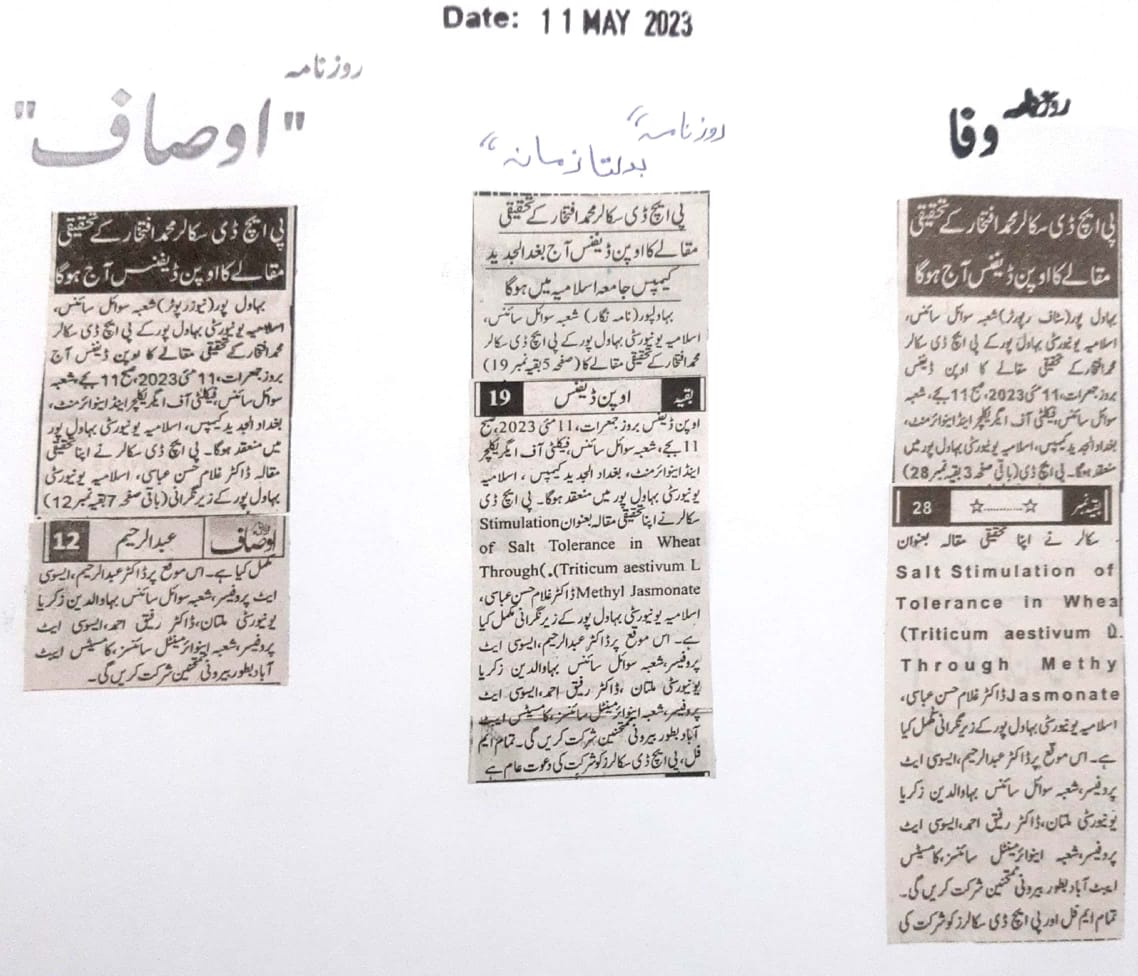 Date: 11 MAY 2023
روزنامہ
"اوصاف"
پی ایچ ڈی سکالر محمد افتخار کے تحقیقی
مقالے کا اوپن ڈیفنس آج ہوگا
بہاول پور(نیوز رپوٹر)شعبہ سوائل سائنس،
اسلامیہ یونیورسٹی بہاول پور کے پی ایچ ڈی سکالر
محمد افتخار کے تحقیقی مقالے کا اوپن ڈیفنس آج
بروز جمعرات،11مئی2023،صبح11بجے،شعبہ
سوائل سائنس،فیکلٹی آف ایگریکلچر اینڈ اینوائرمنٹ،
بغداد الجدید کیمپس، اسلامیہ یونیورسٹی بہاول پور
میں منعقد ہوگا۔ پی ایچ ڈی سکالر نے اپنا تحقیقی
مقالہ ڈاکٹر غلام حسن عباسی، اسلامیہ یونیورسٹی
بہاول پور کے زیر نگرانی (باقی صفحہ7بقیہ نمبر12)
اوصاف عبدالرحیم 12
مکمل کیا ہے۔ اس موقع پر ڈاکٹر عبدالرحیم،ایسوسی
ایٹ پروفیسر،شعبہ سوائل سائنس بہاوالدین زکریا
یونیورسٹی ملتان، ڈاکٹر رفیق احمد، ایسوسی ایٹ
پروفیسر،شعبہ اینوائرمینٹل سائنسز،کامسیٹس ایبٹ
آباد بطور بیرونی ممتحنین شرکت کریں گی۔
روزنامہ "
بدلتا زمانہ "
پی ایچ ڈی سکالر محمد افتخار کے تحقیقی
مقالے کا اوپن ڈیفنس آج بغداد الجدید
کیمپس جامعہ اسلامیہ میں ہوگا
بہاولپور(نامہ نگار) شعبہ سوائل سائنس،
اسلامیہ یونیورسٹی بہاول پور کے پی ایچ ڈی سکالر
محمد افتخار کے تحقیقی مقالے کا (صفحہ 5 بقیہ نمبر 19)
بقیہ اوپن ڈیفنس 19
اوپن ڈیفنس بروز جمعرات، 11مئی 2023،صبح
11 بجے، شعبہ سوائل سائنس، فیکلٹی آف ایگریکلچر
اینڈ اینوائرمنٹ، بغداد الجدید کیمپس، اسلامیہ
یونیورسٹی بہاول پور میں منعقد ہوگا۔ پی ایچ ڈی
سکالر نے اپنا تحقیقی مقالہ بعنوان Stimulation
of Salt Tolerance in Wheat
Through(.(Triticum aestivum L
Methyl Jasmonate ڈاکٹر غلام حسن عباسی،
اسلامیہ یونیورسٹی بہاول پور کے زیر نگرانی مکمل کیا
ہے۔ اس موقع پر ڈاکٹر عبدالرحیم، ایسوسی ایٹ
پروفیسر،شعبہ سوائل سائنس بہاوالدین زکریا
یونیورسٹی ملتان ،ڈاکٹر رفیق احمد،ایسوسی ایٹ
پروفیسر،شعبہ اینوائرمینٹل سائنسز،کامسیٹس ایبٹ
آباد بطور بیرونی ممتحنین شرکت کریں گی۔ تمام ایم
فل، پی ایچ ڈی سکالرز کو شرکت کی دعوت عام ہے
روزنامہ
وفا
پی ایچ ڈی سکالر محمد افتخار کے تحقیقی
مقالے کا اوپن ڈیفنس آج ہوگا
بہاول پور(سٹاف رپورٹر)شعبہ سوائل سائنس،
اسلامیہ یونیورسٹی بہاول پور کے پی ایچ ڈی سکالر
محمد افتخار کے تحقیقی مقالے کا اوپن ڈیفنس
بروز جمعرات،11مئی2023،صبح11بجے،شعبہ
سوائل سائنس،فیکلٹی آف ایگریکلچر اینڈ اینوائرمنٹ،
بغداد الجدید کیمپس،اسلامیہ یونیورسٹی بہاول پور میں
منعقد ہوگا۔ پی ایچ ڈی(باقی صفحہ3بقیہ نمبر28)
بقیہ نمبر ☆..........☆ 28
سکالر نے اپنا تحقیقی مقالہ بعنوان
Salt Stimulation of
Tolerance in Whea
(Triticum aestivum
Through Methy
Jasmonate ڈاکٹر غلام حسن عباسی،
اسلامیہ یونیورسٹی بہاول پور کے زیر نگرانی مکمل کیا
ہے۔ اس موقع پر ڈاکٹر عبدالرحیم،ایسوسی ایٹ
پروفیسر،شعبہ سوائل سائنس بہاوالدین زکریا
یونیورسٹی ملتان،ڈاکٹر رفیق احمد،ایسوسی ایٹ
پروفیسر،شعبہ اینوائرمینٹل سائنسز،کامسیٹس
ایبٹ آباد بطور بیرونی ممتحنین شرکت کریں گی۔
تمام ایم فل اور پی ایچ ڈی سکالرز کو شرکت کی